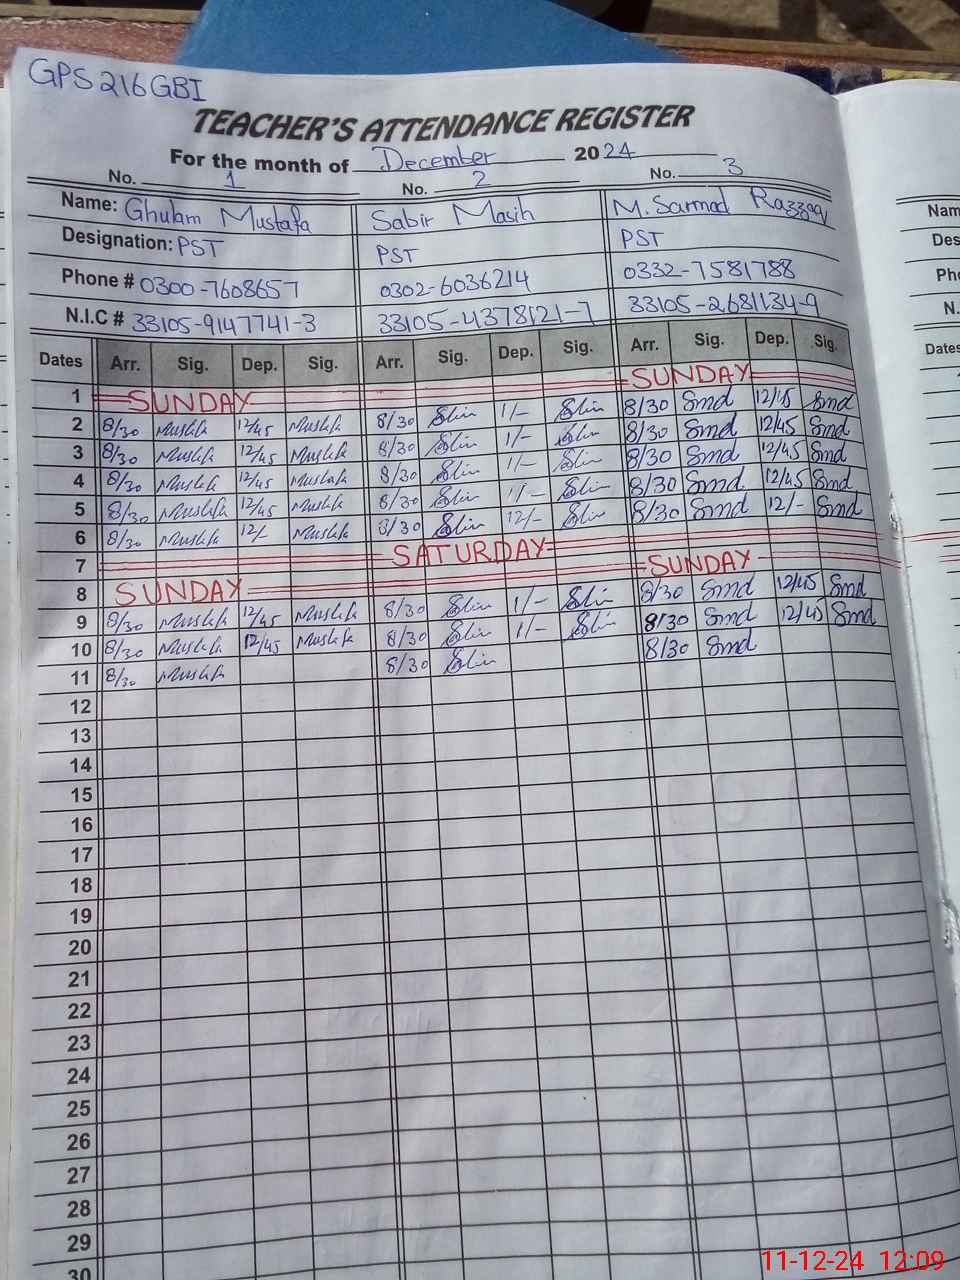 GPS 216 GBI
TEACHER'S ATTENDANCE REGISTER
For the month of December 2024
No. 1 No. 2 No. 3
Name: Ghulam Mustafa Sabir Masih M. Sarmad Razzaq
Designation: PST PST PST
Phone # 0300-7608657 0302-6036214 0332-7581788
N.I.C # 33105-9147741-3 33105-4378121-7 33105-2681134-9
Dates Arr. Sig. Dep. Sig. Arr. Sig. Dep. Sig. Arr. Sig. Dep. Sig.
1 SUNDAY SUNDAY
2 8/30 Mustafa 12/45 Mustafa 8/30 1/- 8/30 Smd 12/45 Smd
3 8/30 Mustafa 12/45 Mustafa 8/30 1/- 8/30 Smd 12/45 Smd
4 8/30 Mustafa 12/45 Mustafa 8/30 1/- 8/30 Smd 12/45 Smd
5 8/30 Mustafa 12/45 Mustafa 8/30 1/- 8/30 Smd 12/45 Smd
6 8/30 Mustafa 12/- Mustafa 8/30 12/- 8/30 Smd 12/- Smd
7 SATURDAY
8 SUNDAY SUNDAY
9 8/30 Mustafa 12/45 Mustafa 8/30 1/- 8/30 Smd 12/45 Smd
10 8/30 Mustafa 12/45 Mustafa 8/30 1/- 8/30 Smd 12/45 Smd
11 8/30 Mustafa 8/30 8/30 Smd
12
13
14
15
16
17
18
19
20
21
22
23
24
25
26
27
28
29
30
Nam
Des
Pho
N.
Dates
11-12-24 12:09